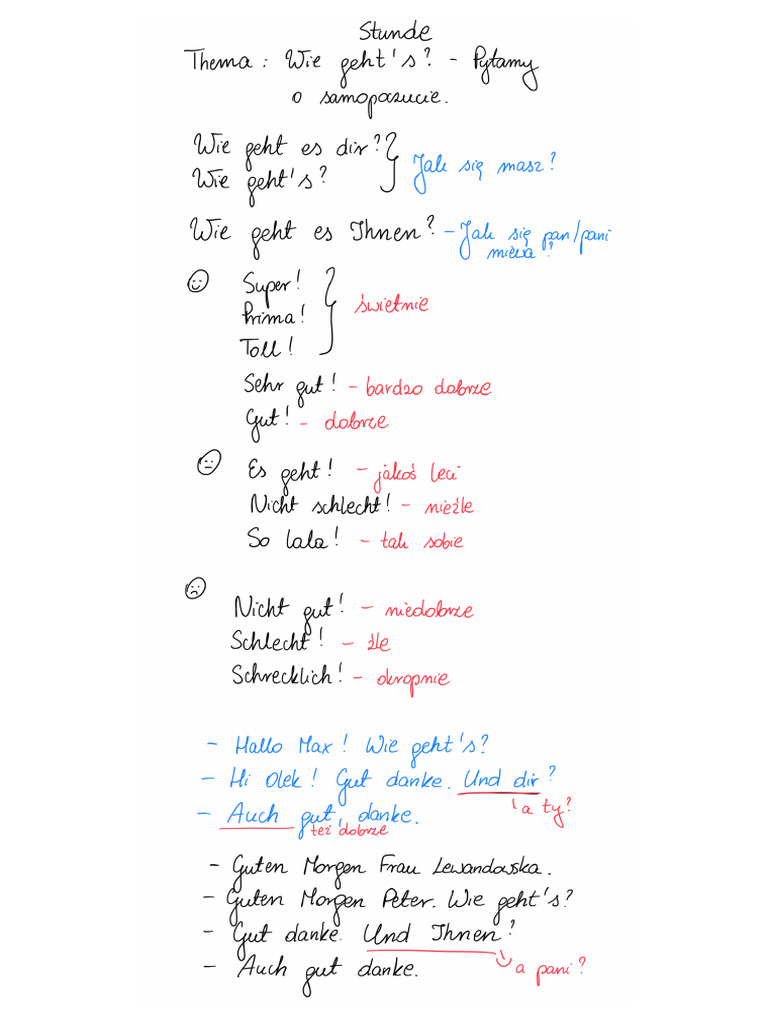 Stunde
Thema: Wie geht's? - Pytamy
o samopoczucie.
Wie geht es dir?
Wie geht's?
Jak się masz?
Wie geht es Ihnen? - Jak się pan/pani
miewa?
Super!
Prima!
Toll!
świetnie
Sehr gut! - bardzo dobrze
Gut! - dobrze
Es geht! - jakoś leci
Nicht schlecht! - nieźle
So lala! - tak sobie
Nicht gut! - niedobrze
Schlecht! - źle
Schrecklich! - okropnie
- Hallo Max! Wie geht's?
- Hi Olek! Gut danke. Und dir?
a ty?
- Auch gut, danke.
też dobrze
- Guten Morgen Frau Lewandowska.
- Guten Morgen Peter. Wie geht's?
- Gut danke. Und Ihnen?
- Auch gut danke.
a pani?